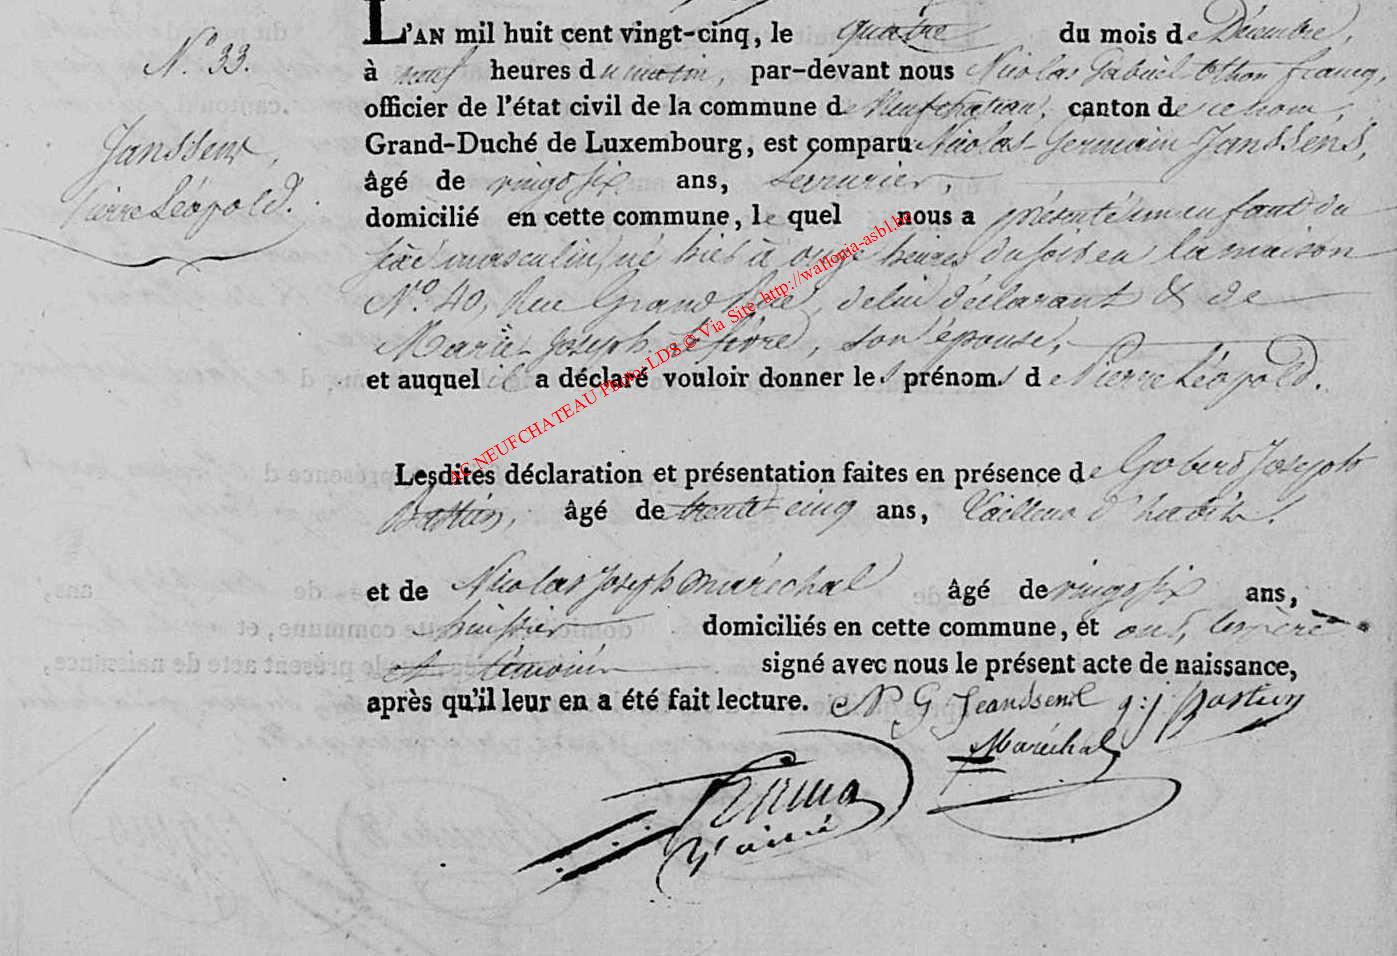 N.° 33.
Janssens,
Pierre Léopold.
L'AN mil huit cent vingt-cinq, le quatre du mois de Décembre,
à neuf heures du matin, par-devant nous Nicolas Gabriel Othon francq,
officier de l'état civil de la commune de Neufchateau, canton de ce nom,
Grand-Duché de Luxembourg, est comparu Nicolas Germain Janssens,
âgé de vingt six ans, Serrurier,
domicilié en cette commune, lequel nous a présenté un enfant du
sexe masculin, né hier à onze heures du soir en la maison
N.° 40, Rue Grand Rue, de lui déclarant & de
Marie Joseph Lefèvre, son épouse,
et auquel il a déclaré vouloir donner les prénoms de Pierre Léopold.
AC NEUFCHATEAU Photo LDS © Via Site http://wallonia-asbl.be
Lesdites déclaration et présentation faites en présence de Joseph
Bastien, âgé de trente cinq ans, tailleur d'habits,
et de Nicolas Joseph Maréchal âgé de vingt six ans,
huissier domiciliés en cette commune, et ont, le père
et témoins signé avec nous le présent acte de naissance,
après qu'il leur en a été fait lecture. N G Jeandsens g: j Bastien
Maréchal